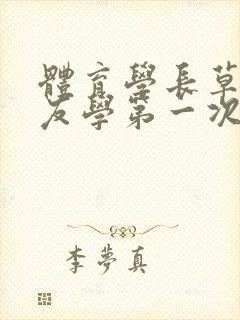 體育學長草
友學第一次
李夢真